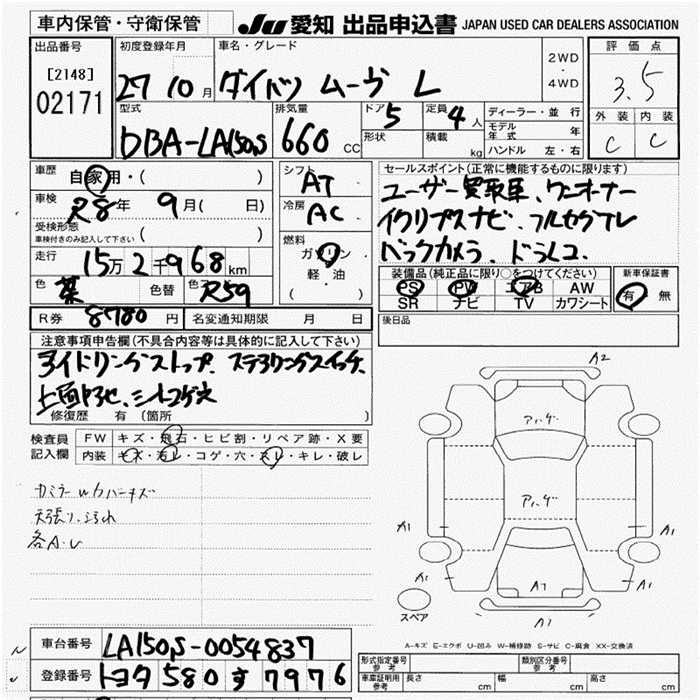 車内保管・守衛保管 JU 愛知 出品申込書 JAPAN USED CAR DEALERS ASSOCIATION
出品番号 初度登録年月 車名・グレード 評価点
[2148] 27 10月 ダイハツ ムーヴ L 2WD・4WD 3.5
02171
型式 排気量 ドア 5 定員 4人 ディーラー・並行 外装 内装
DBA-LA150S 660 CC 形状 積載 kg モデル年式 年 C C
ハンドル 左・右
車歴 自家用・( ) シフト AT セールスポイント(正常に機能するものに限ります)
車検 R8年 9月( 日) 冷房 AC ユーザー買取車、ワンオーナー
受検形態 ( ) イクリプスナビ・フルセグTV
車検付きのみ記入して下さい 燃料 ガソリン・ バックカメラ、ドラレコ
走行 15万2千968km 軽・油 装備品(純正品に限り○をつけてください) 新車保証書
色 茶 色替 色 R59 ( ) PS PW エアB AW 有・無
SR ナビ TV カワシート
R券 8780円 名変通知期限 月 日 後日品
注意事項申告欄(不具合内容等は具体的に記入して下さい)
アイドリングストップ、ステアリングスイッチ、
修復歴 有 (箇所 )
検査員 FW キズ・飛石・ヒビ割・リペア跡・X要
記入欄 内装 キズ・汚レ・コゲ・穴・スレ・キレ・破レ
天張り汚れ
各A・U
A2
アハ.ゲ
アハ.ゲ
A1 A1
A1 A1 A1
スペア A1
A-キズ E-エクボ U-凹み W-補修跡 S-サビ C-腐食 XX-交換済
車台番号 LA150S-0054837
登録番号 トヨタ 580 す 7976
形式指定番号 参考 類別区分番号 参考
車庫証明用 参考 長さ cm 幅 cm 高さ cm